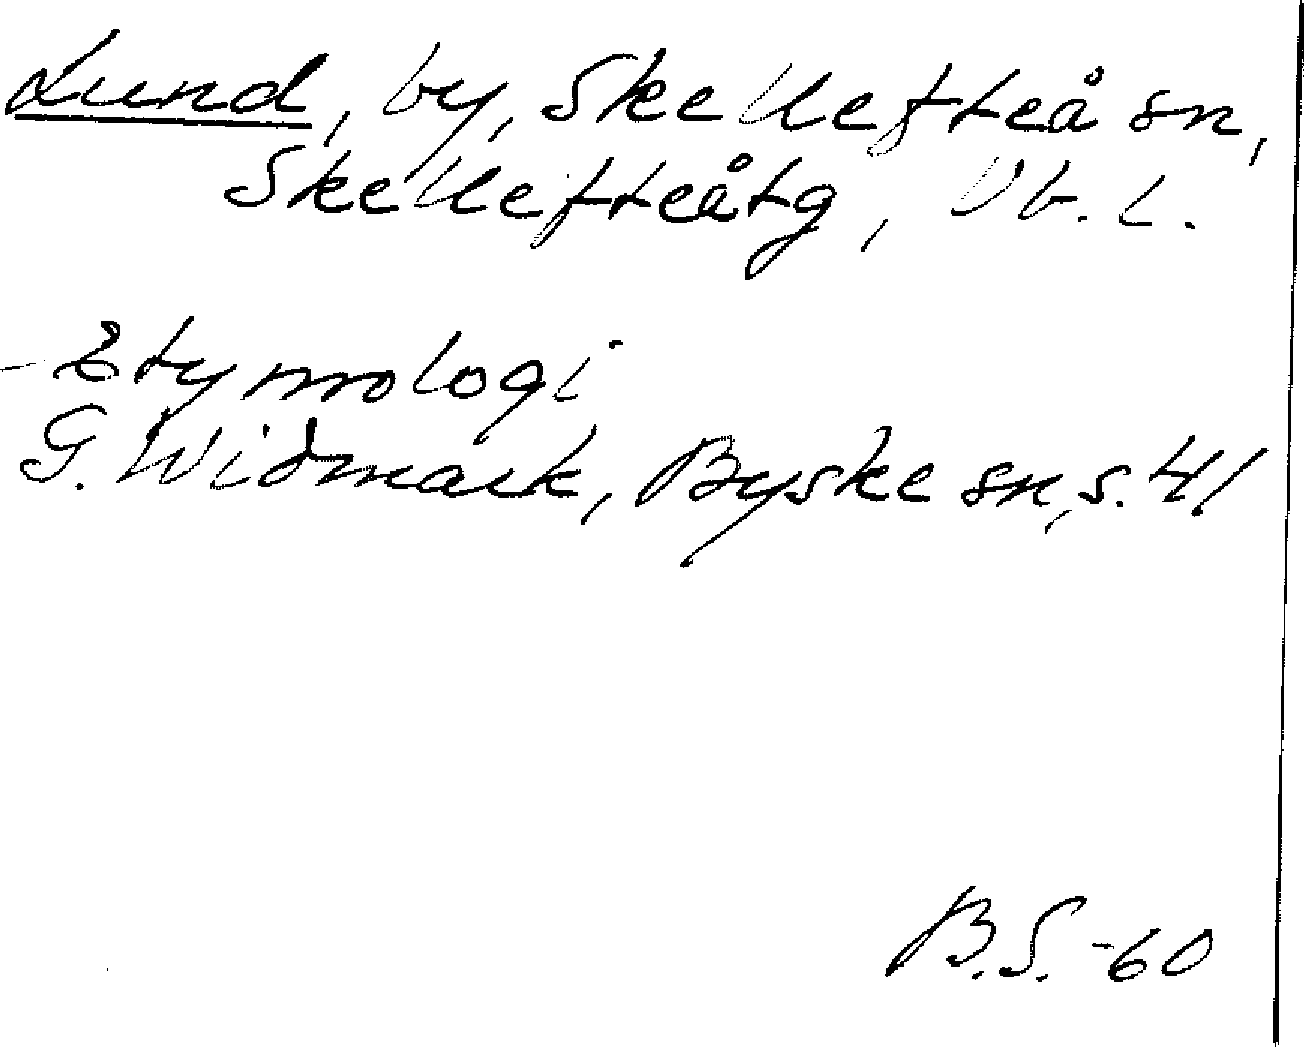 Lund, by, Skellefteå sn,
Skellefteåtg, Vb. l.
Etymologi
G. Widmark, Byske sn, s. 41
B.S. -60